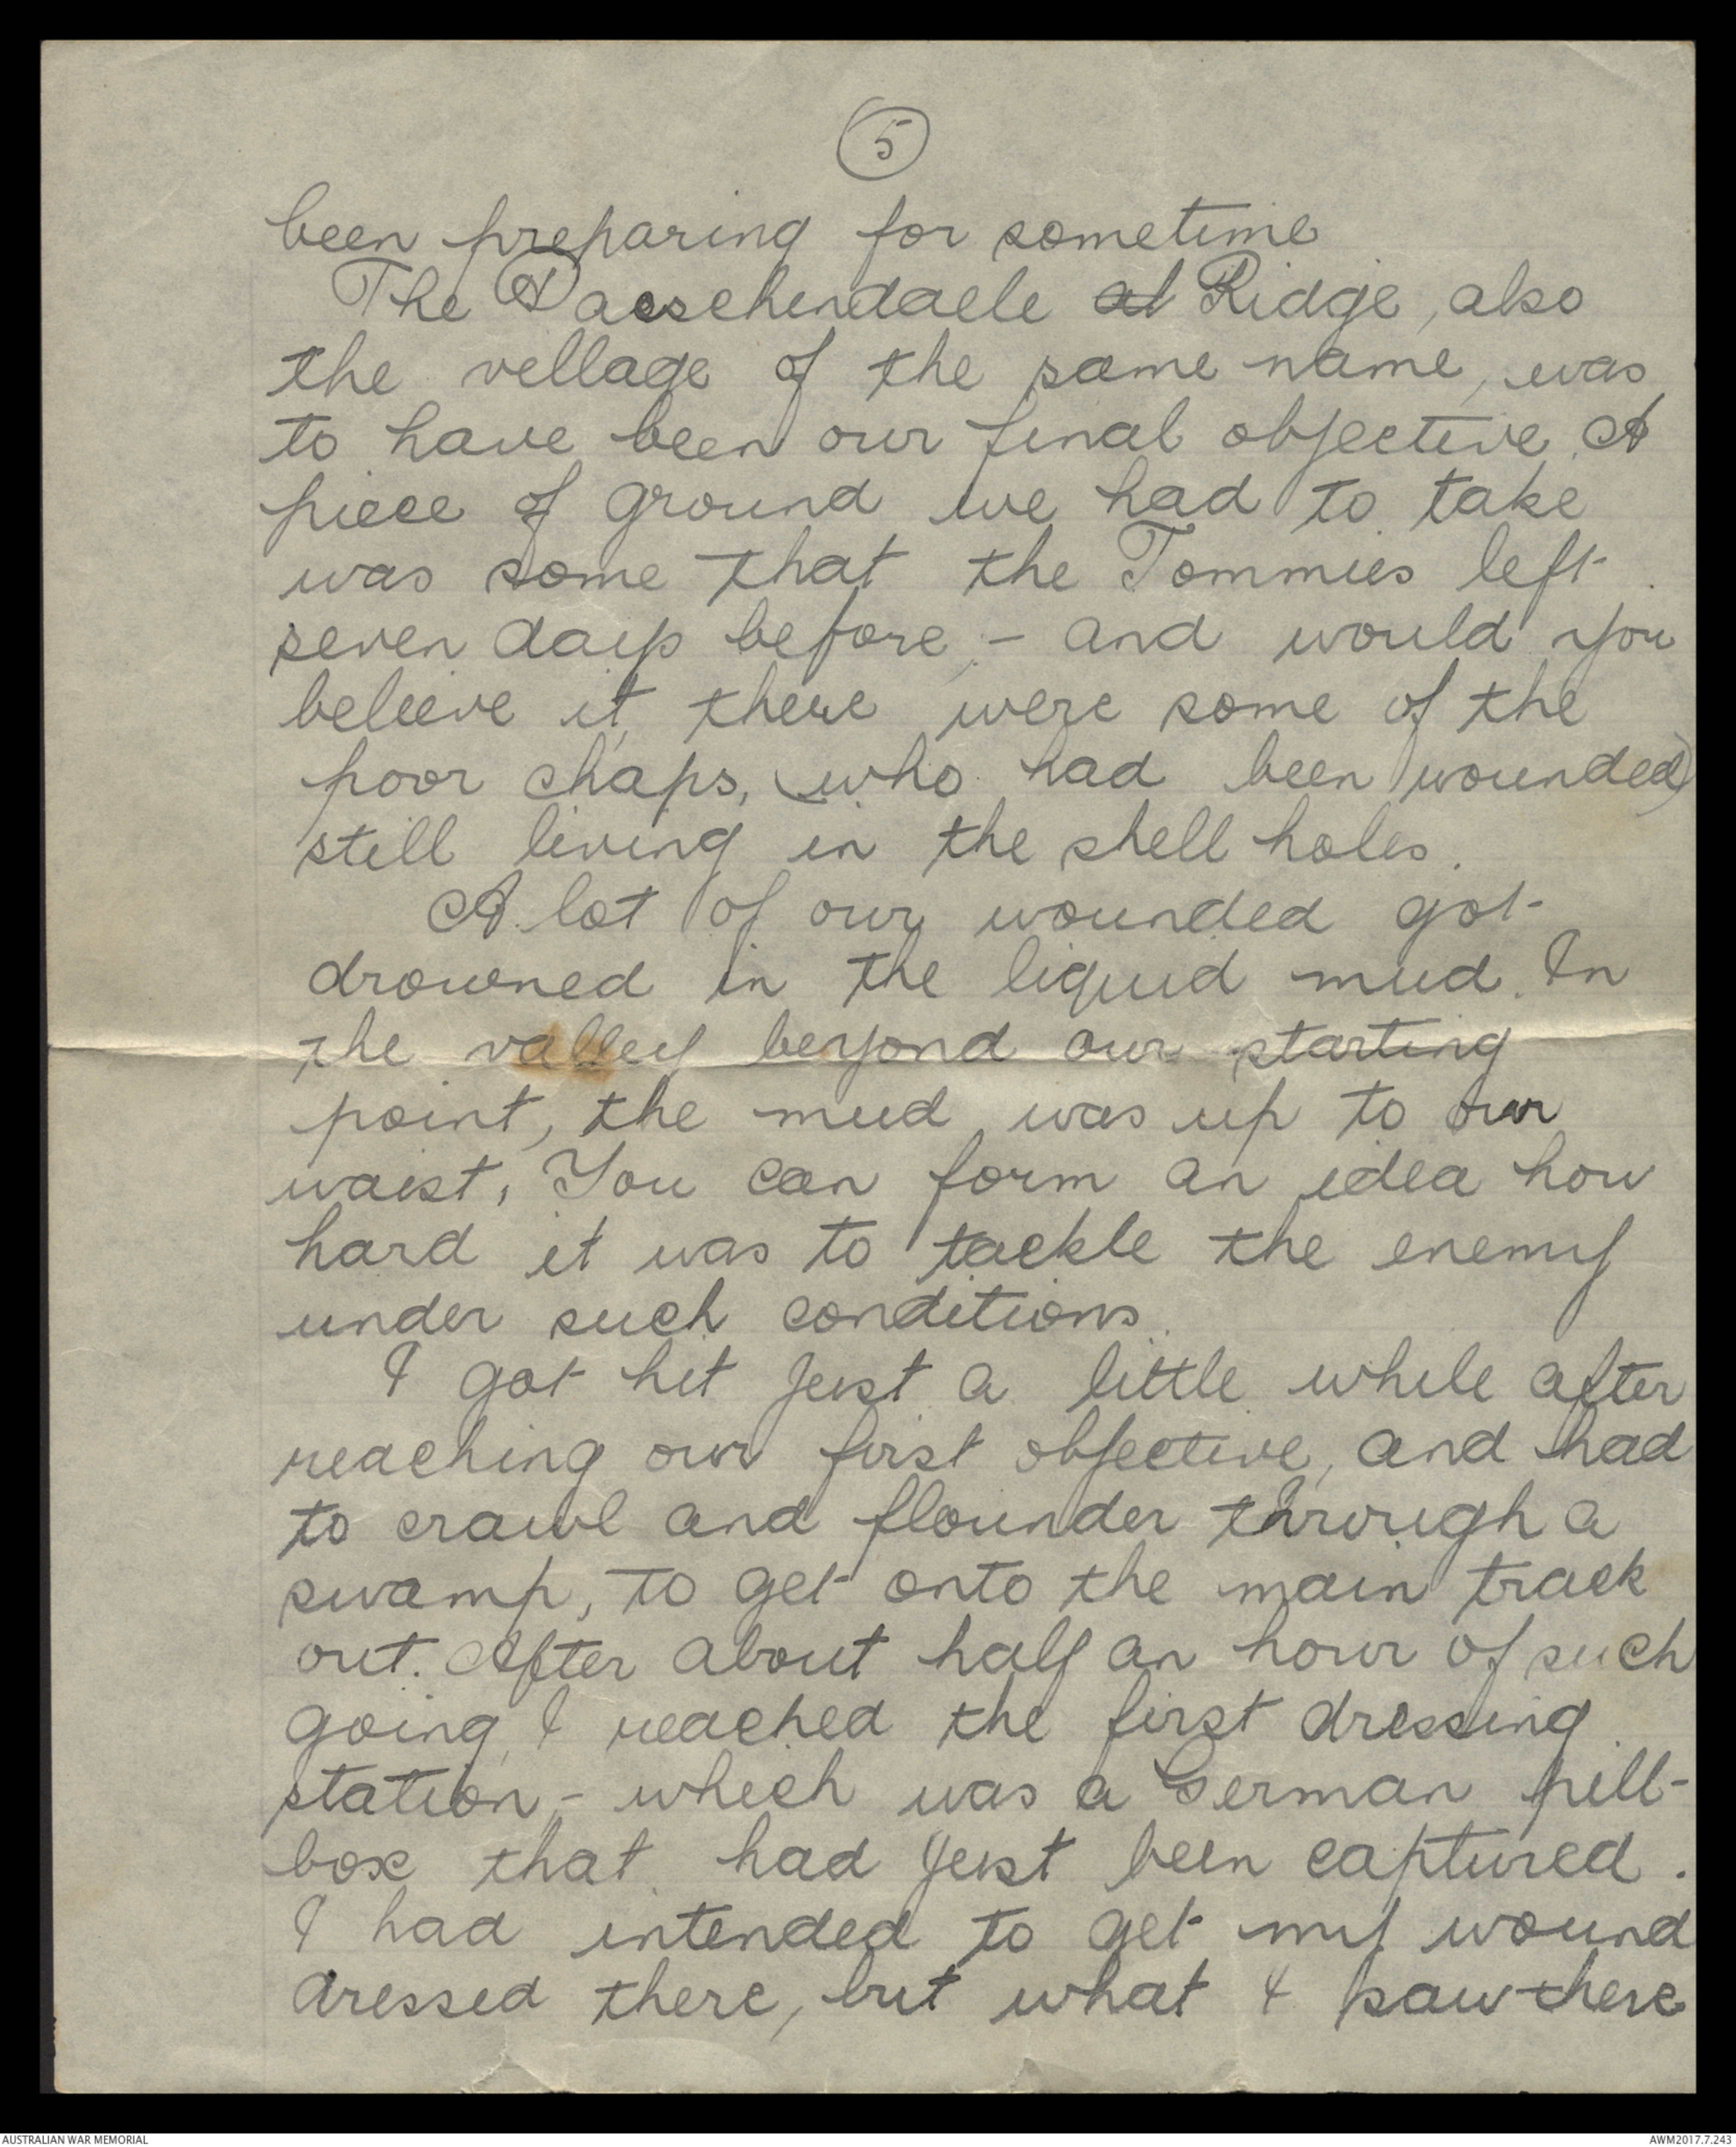 5
been preparing for sometime
The Passchendaele at Ridge, also
the village of the same name, was
to have been our final objective. A
piece of ground we had to take
was some that the Tommies left
seven days before, - and would you
beleive it, there were some of the
poor chaps, (who had been wounded)
still living in the shell holes.
A lot of our wounded got
drowned in the liquid mud. In
the valley beyond our starting
point, the mud was up to our
waist, You can form an idea how
hard it was to tackle the enemy
under such conditions.
I got hit just a little while after
reaching our first objective, and had
to crawl and flounder through a
swamp, to get onto the main track
out. After about half an hour of such
going, I reached the first dressing
station, - which was a German pill-
box that had just been captured.
I had intended to get my wound
dressed there, but what I saw there
AUSTRALIAN WAR MEMORIAL
AWM2017.7.243